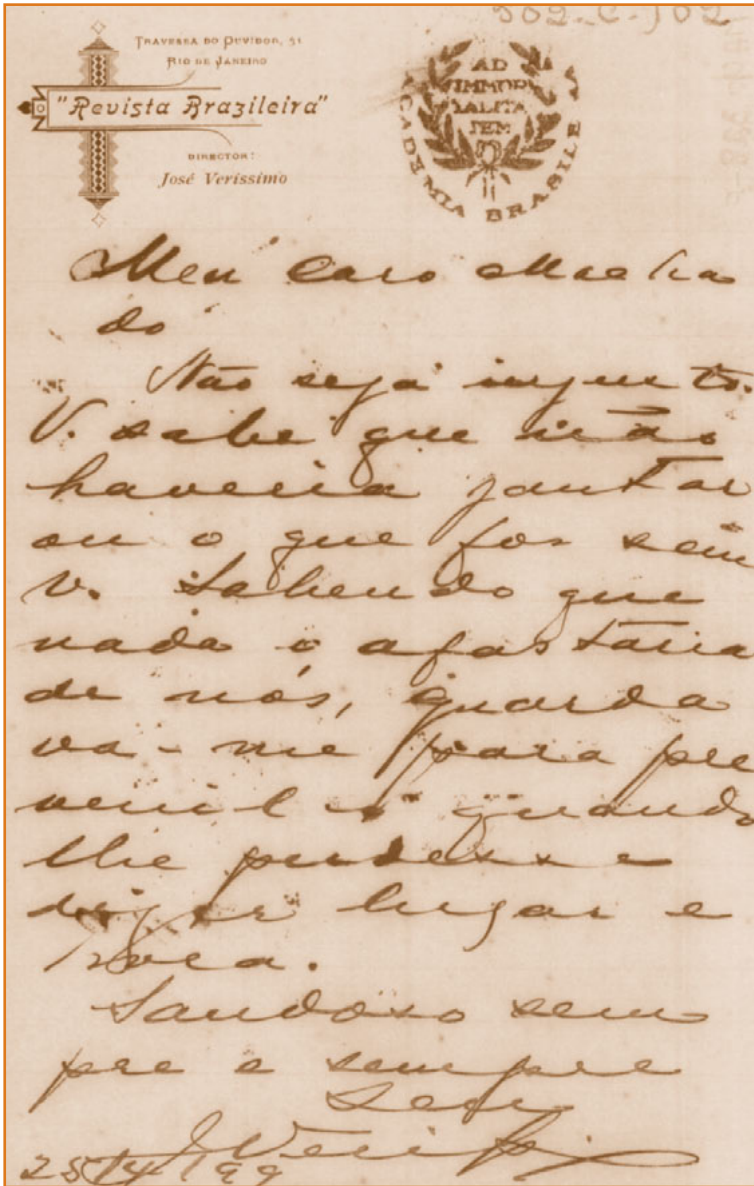 302-C-102
TRAVESSA DO OUVIDOR, 31
RIO DE JANEIRO
"Revista Brazileira"
DIRECTOR:
José Veríssimo
AD
IMMOR
TALITA
TEM
ACADEMIA BRASILEA
Meu caro Macha
do
Não seja injusto.
V. sabe que não
haveria jantar
ou o que for sem
V. Sabendo que
nada o afastaria
de nós, guarda
va-me para pre
venil-o quando
lhe pudesse
dizer lugar e
hora.
Saudoso sem
pre e sempre
Seu
JVerissimo
25/4/99